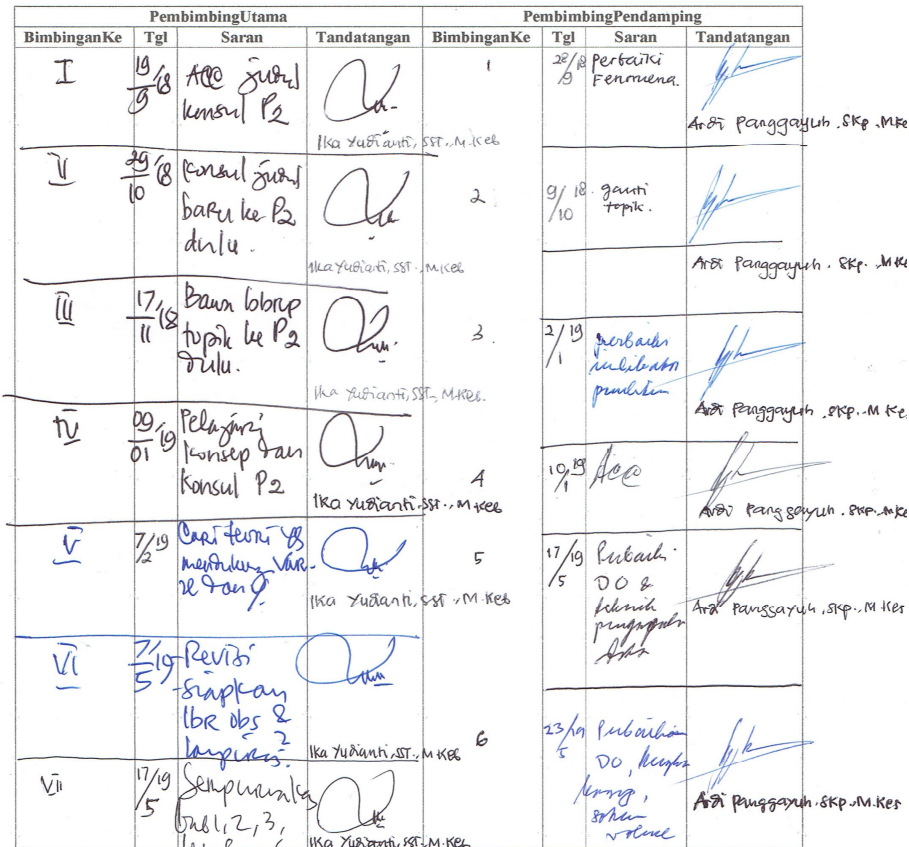 PembimbingUtama PembimbingPendamping
BimbinganKe Tgl Saran Tandatangan BimbinganKe Tgl Saran Tandatangan
I 19/9 18 Acc judul
konsul P2
Ika Yudianti, SST., M.Keb
1 28/9 18 Perbaiki
Fenomena.
Ardi Panggayuh, SKp., M.Kes
II 29/10 18 Konsul judul
baru ke P2
dulu.
Ika Yudianti, SST., M.Keb
2 9/10 18 ganti
topik.
Ardi Panggayuh, SKp., M.Kes
III 17/11 18 Bawa bbrp
topik ke P2
dulu.
Ika Yudianti, SST., M.Keb.
3. 2/1 19 perbaiki
penelitian
Ardi Panggayuh, SKp., M.Kes
IV 09/01 19 Pelajari
konsep dan
konsul P2
Ika Yudianti, SST., M.Keb
4 10/1 19 Acc
Ardi Panggayuh, SKp., M.Kes
V 7/2 19 Cari teori yg
mendukung var.
x dan y.
Ika Yudianti, SST., M.Keb
5 17/5 19 Perbaiki
DO &
teknik
Ardi Panggayuh, SKp., M.Kes
VI 7/5 19 - Revisi
- Siapkan
lbr obs &
lampiran2
Ika Yudianti, SST., M.Keb
6 23/5 19
DO,
Ardi Panggayuh, SKp., M.Kes
VII 17/5 19 Sempurnakan
bab 1, 2, 3,
Ika Yudianti, SST., M.Keb